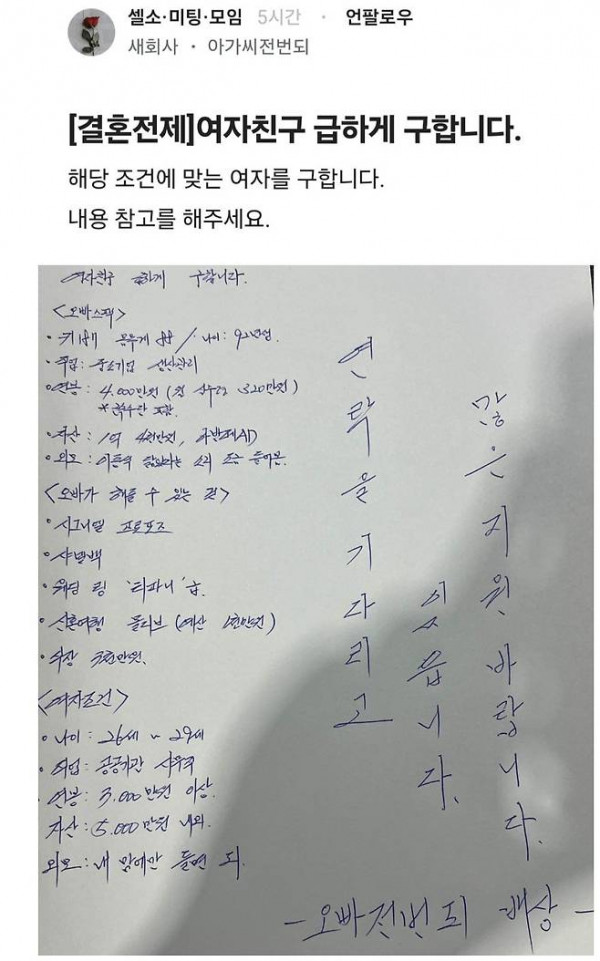 셀소·미팅·모임 5시간 · 언팔로우
새회사 · 아가씨전번되
[결혼전제]여자친구 급하게 구합니다.
해당 조건에 맞는 여자를 구합니다.
내용 참고를 해주세요.
여자친구 급하게 구합니다.
<오빠스펙>
· 나이: 92년생
· 직업: 중소기업 생산관리
· 연봉: 4,000만원 (월 실수령 320만원)
포함.
· 자산: 1억
· 외모: 이동욱 닮았다는 소리 조금 들어봄.
<오빠가 해줄 수 있는 것>
· 시그니엘 프로포즈
· 샤넬백
· 웨딩 링 '티파니' 급
· 신혼여행 몰디브 (예산 1천만원)
<여자조건>
· 나이: 26세 ~ 29세
· 직업: 공공기관 사무직
· 연봉: 3,000만원 이상.
자산: 5,000만원 내외.
외모: 내 맘에만 들면 되.
많은 지원 바랍니다.
연락을 기다리고
있읍니다.
- 오빠전번되 배상 -